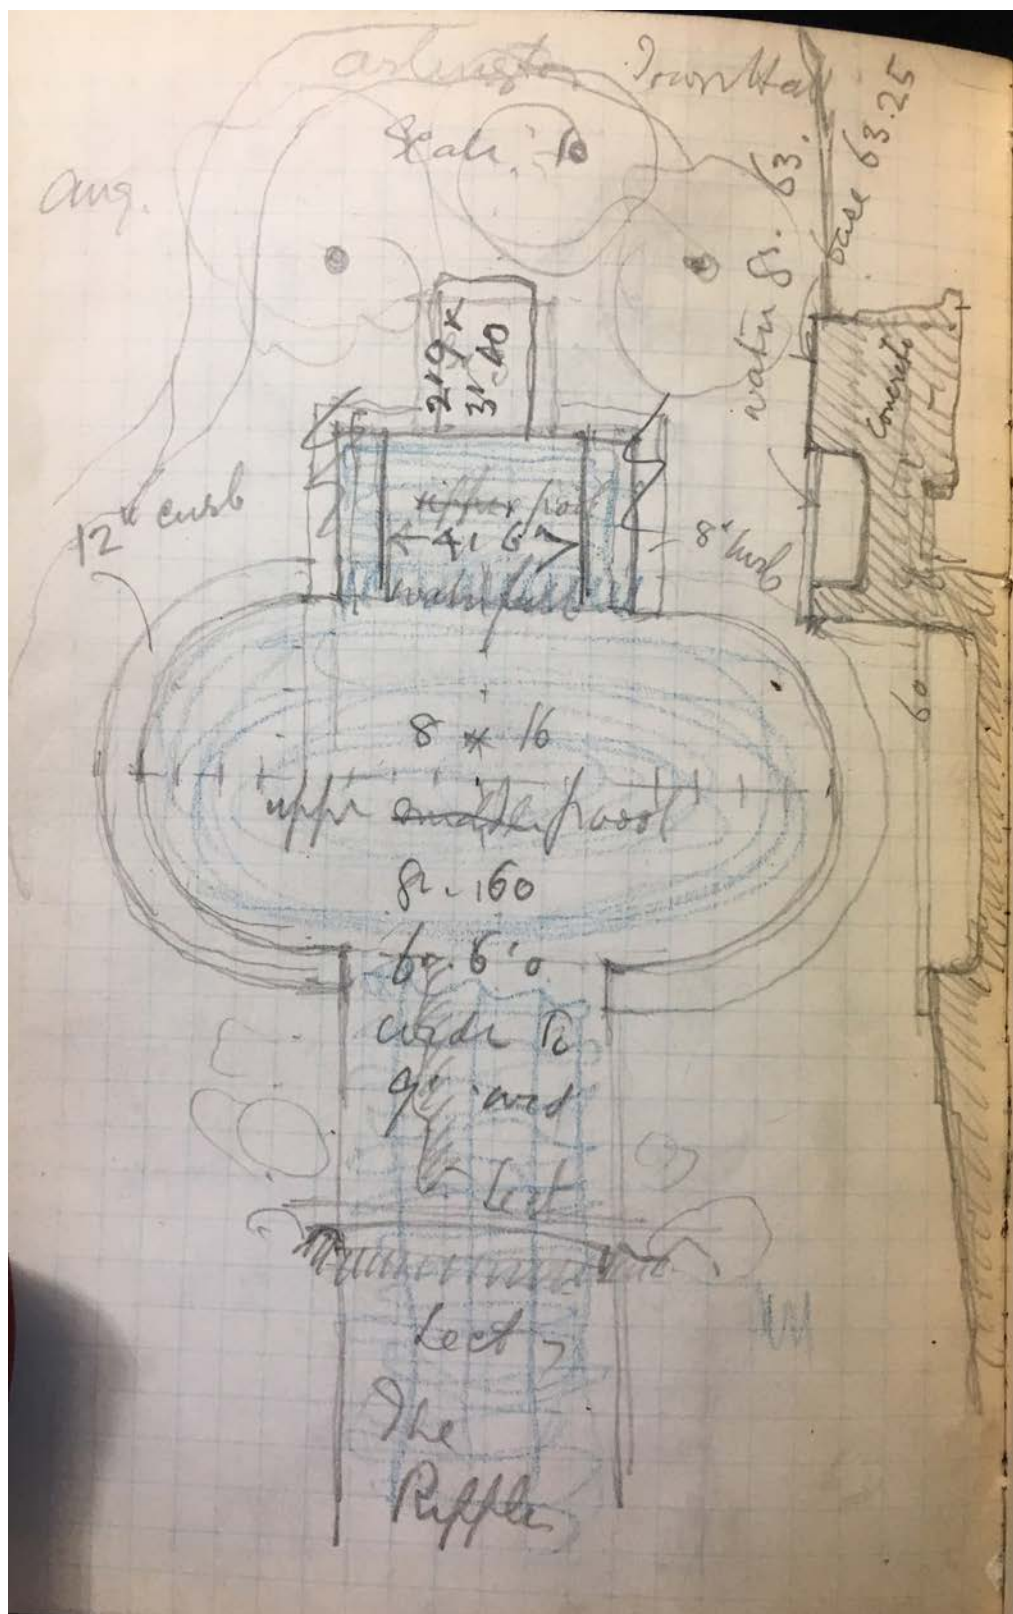 arlington Town Hall
Scale
aug.
water gr. 63.
base 63.25
2'9" x
3'
concrete
12" curb
upper pool
4' 6"
8" curb
waterfall
60
8 x 16
upper middle pool
gr. 160
6'0
wide to
9'
Sect
Sect
The
Riffles